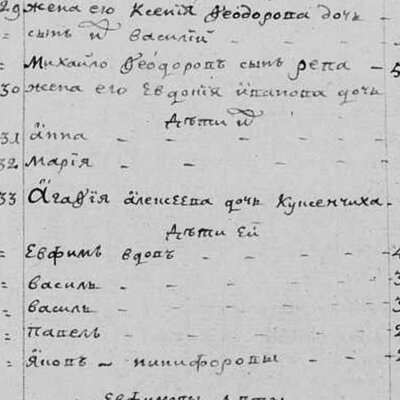 29 жена его Ксенія Ѳеодорова дочь -
= сынъ и҃ Василій - -
= Михайло Ѳеодоровъ сынъ репа - 5
30 жена его Евдокія іванова дочь
дѣти и҃
31 анна - - - - - -
32 Марія - - - - -
33 Агафія алексеева дочь Кунченчиха -
Дѣти Ей
= Евфимъ вдовъ - - - - 4
= василь - - - - - - 3
= василь - - - - - - 3
= Павелъ - - - - - - 2
= Яковъ - никифоровы - - 2
Евфимовы дѣти